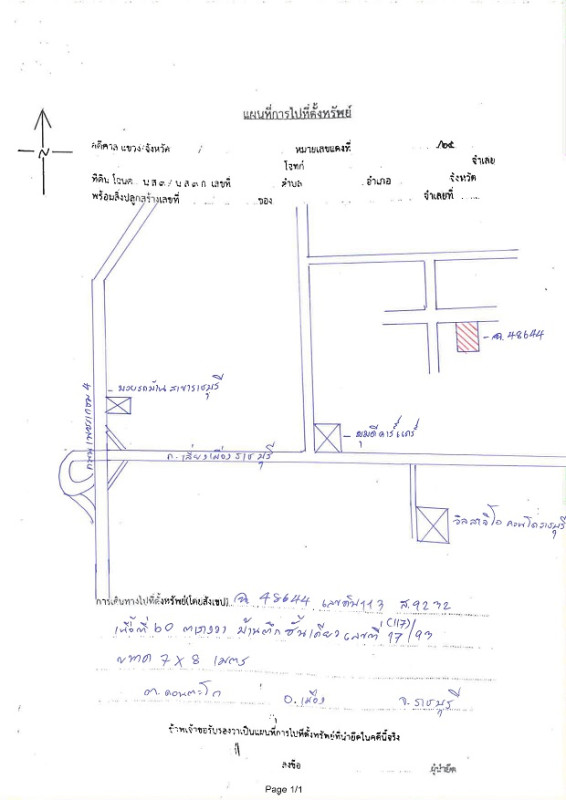 แผนที่การไปที่ตั้งทรัพย์
N
คดีศาล แขวง/จังหวัด / หมายเลขแดงที่ /๒๕
โจทก์ จำเลย
ที่ดิน โฉนด น.ส.๓ / น.ส.๓ ก เลขที่ ตำบล อำเภอ จังหวัด
พร้อมสิ่งปลูกสร้างเลขที่ ของ จำเลยที่
ฉ. 48644
ถนนเพชรเกษม 4
สาขาราชบุรี
คาร์แคร์
ถ. เลี่ยงเมืองราชบุรี
คอนโดราชบุรี
การเดินทางไปที่ตั้งทรัพย์(โดยสังเขป) ฉ. 48644 เลขดิน 113 ส. 9232
เนื้อที่ 60 ตารางวา บ้านตึกชั้นเดียว เลขที่ 17/93
(117)
ขนาด 7 X 8 เมตร
ต. ดอนตะโก อ. เมือง จ. ราชบุรี
ข้าพเจ้าขอรับรองว่าเป็นแผนที่การไปที่ตั้งทรัพย์ที่นำยึดในคดีนี้จริง
ลงชื่อ ผู้นำยึด
Page 1/1